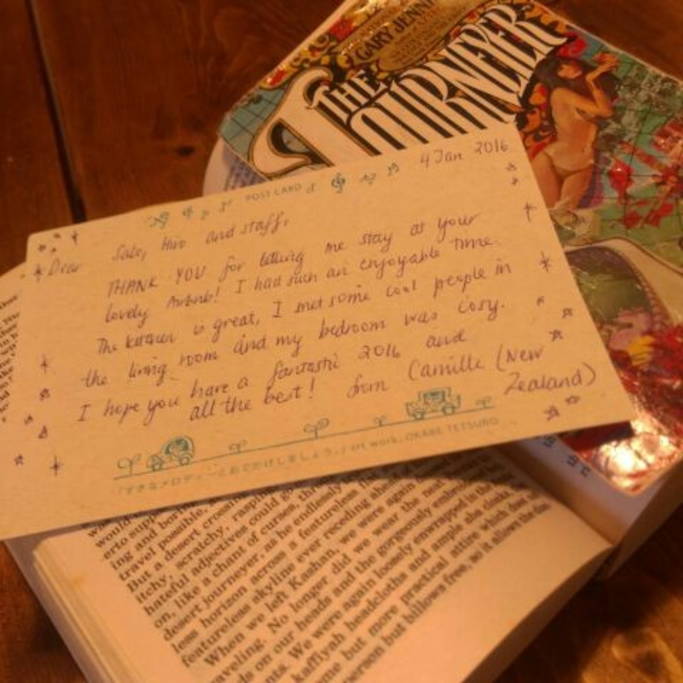 GARY JENN
THE
JOURNEYER
4 Jan 2016
POST CARD
Dear Sato, Hiro and staff,
THANK YOU for letting me stay at your
lovely Airbnb! I had such an enjoyable time.
The kitchen is great, I met some cool people in
the living room and my bedroom was cosy.
I hope you have a fantastic 2016 and
all the best! from Camille (New
Zealand)
すてきなメロディーとおでかけしましょう♪ / art work. OKABE TETSURO
would
erto sup
ing and borin
travel possible,
But a desert crossin
itchy, scratchy, raspin
hateful adjectives could go
on, like a chant of curses, thr
desert journeyer, as he endlessly
less horizon across a featureless
featureless skyline ever receding ahe
When we left Kashan, we were again
aveling. No longer did we wear the neat
ds on our heads and the gorgeously embroi
nts. We were again loosely enwrapped in the
kaffiyah headcloths and ample aba cloaks,
me but more practical attire which does
erson but billows free, so it allows the